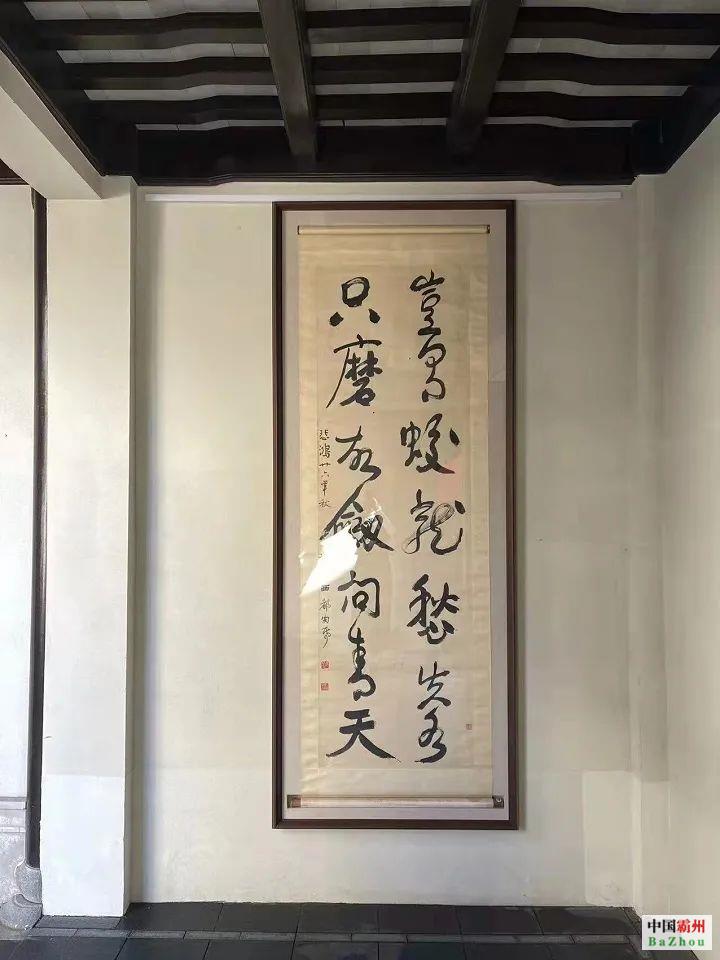 豈蛟龍愁失水
只磨劍問青天
悲鴻廿六年秋
中国霸州
BaZhou